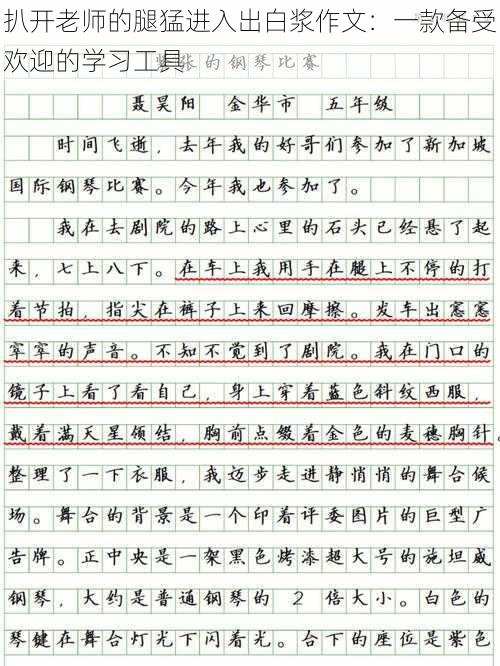 扒开老师的腿猛进入出白浆作文：一款备受
欢迎的学习工具
张的钢琴比赛
聂昊阳 金华市 五年级
时间飞逝，去年我的好哥们参加了新加坡
国际钢琴比赛。今年我也参加了。
我在去剧院的路上心里的石头已经悬了起
来，七上八下。在车上我用手在腿上不停的打
着节拍，指尖在裤子上来回摩擦。发车出窸窸
窣窣的声音。不知不觉到了剧院。我在门口的
镜子上看了看自己，身上穿着蓝色斜纹西服，
戴着满天星领结，胸前点缀着金色的麦穗胸针。
整理了一下衣服，我迈步走进静悄悄的舞台候
场。舞台的背景是一个印着评委图片的巨型广
告牌。正中央是一架黑色烤漆超大号的施坦威
钢琴，大约是普通钢琴的 2 倍大小。白色的
琴键在舞台灯光下闪着光。台下的座位是紫色